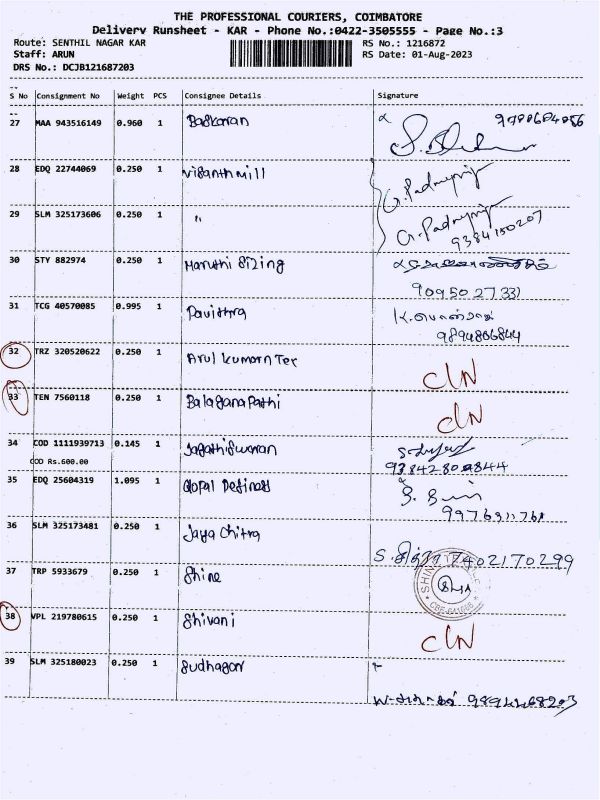 THE PROFESSIONAL COURIERS, COIMBATORE
Delivery Runsheet - KAR - Phone No.:0422-3505555 - Page No.:3
Route: SENTHIL NAGAR KAR RS No.: 1216872
Staff: ARUN RS Date: 01-Aug-2023
DRS No.: DCJB121687203
S No Consignment No Weight PCS Consignee Details Signature
27 MAA 943516149 0.960 1 Baskaran
28 EDQ 22744069 0.250 1
29 SLM 325173606 0.250 1 "
G.Padmapriya
9384150207
30 STY 882974 0.250 1 Maruthi Sizing
9095027331
31 TCG 40570085 0.995 1 Pavithra
9894806844
32 TRZ 320520622 0.250 1 Arul Kumarn Tex CLN
33 TEN 7560118 0.250 1 Balaganapathi CLN
34 COD 1111939713 0.145 1 Jagathiswaran
COD Rs.600.00
35 EDQ 25604319 1.095 1 Gopal
36 SLM 325173481 0.250 1 Jaya Chitra
S. சித்ரா 7402170299
37 TRP 5933679 0.250 1 Shine
38 VPL 219780615 0.250 1 Shivani CLN
39 SLM 325180023 0.250 1 Sudhagar